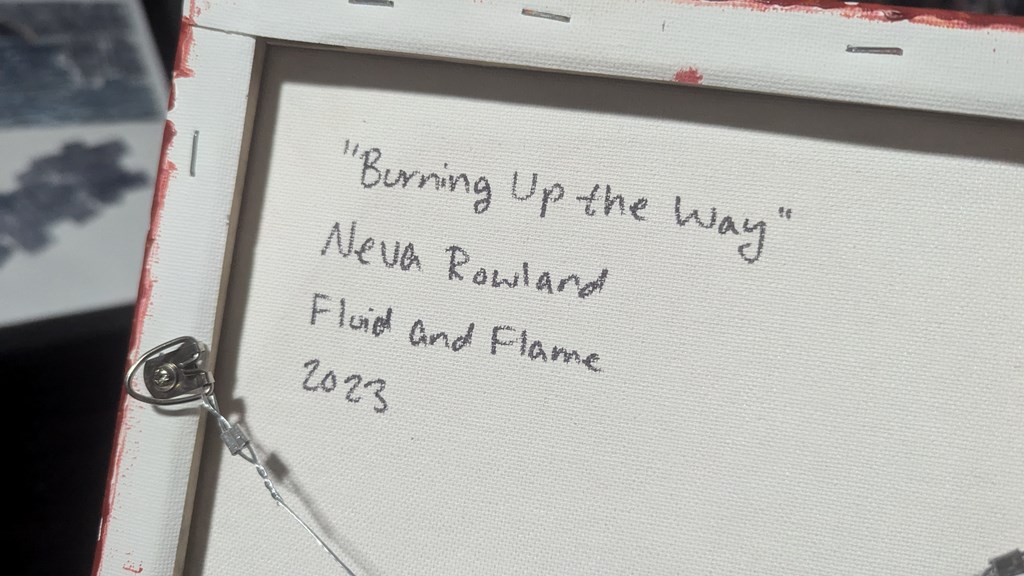 "Burning Up the Way"
Neva Rowland
Fluid and Flame
2023